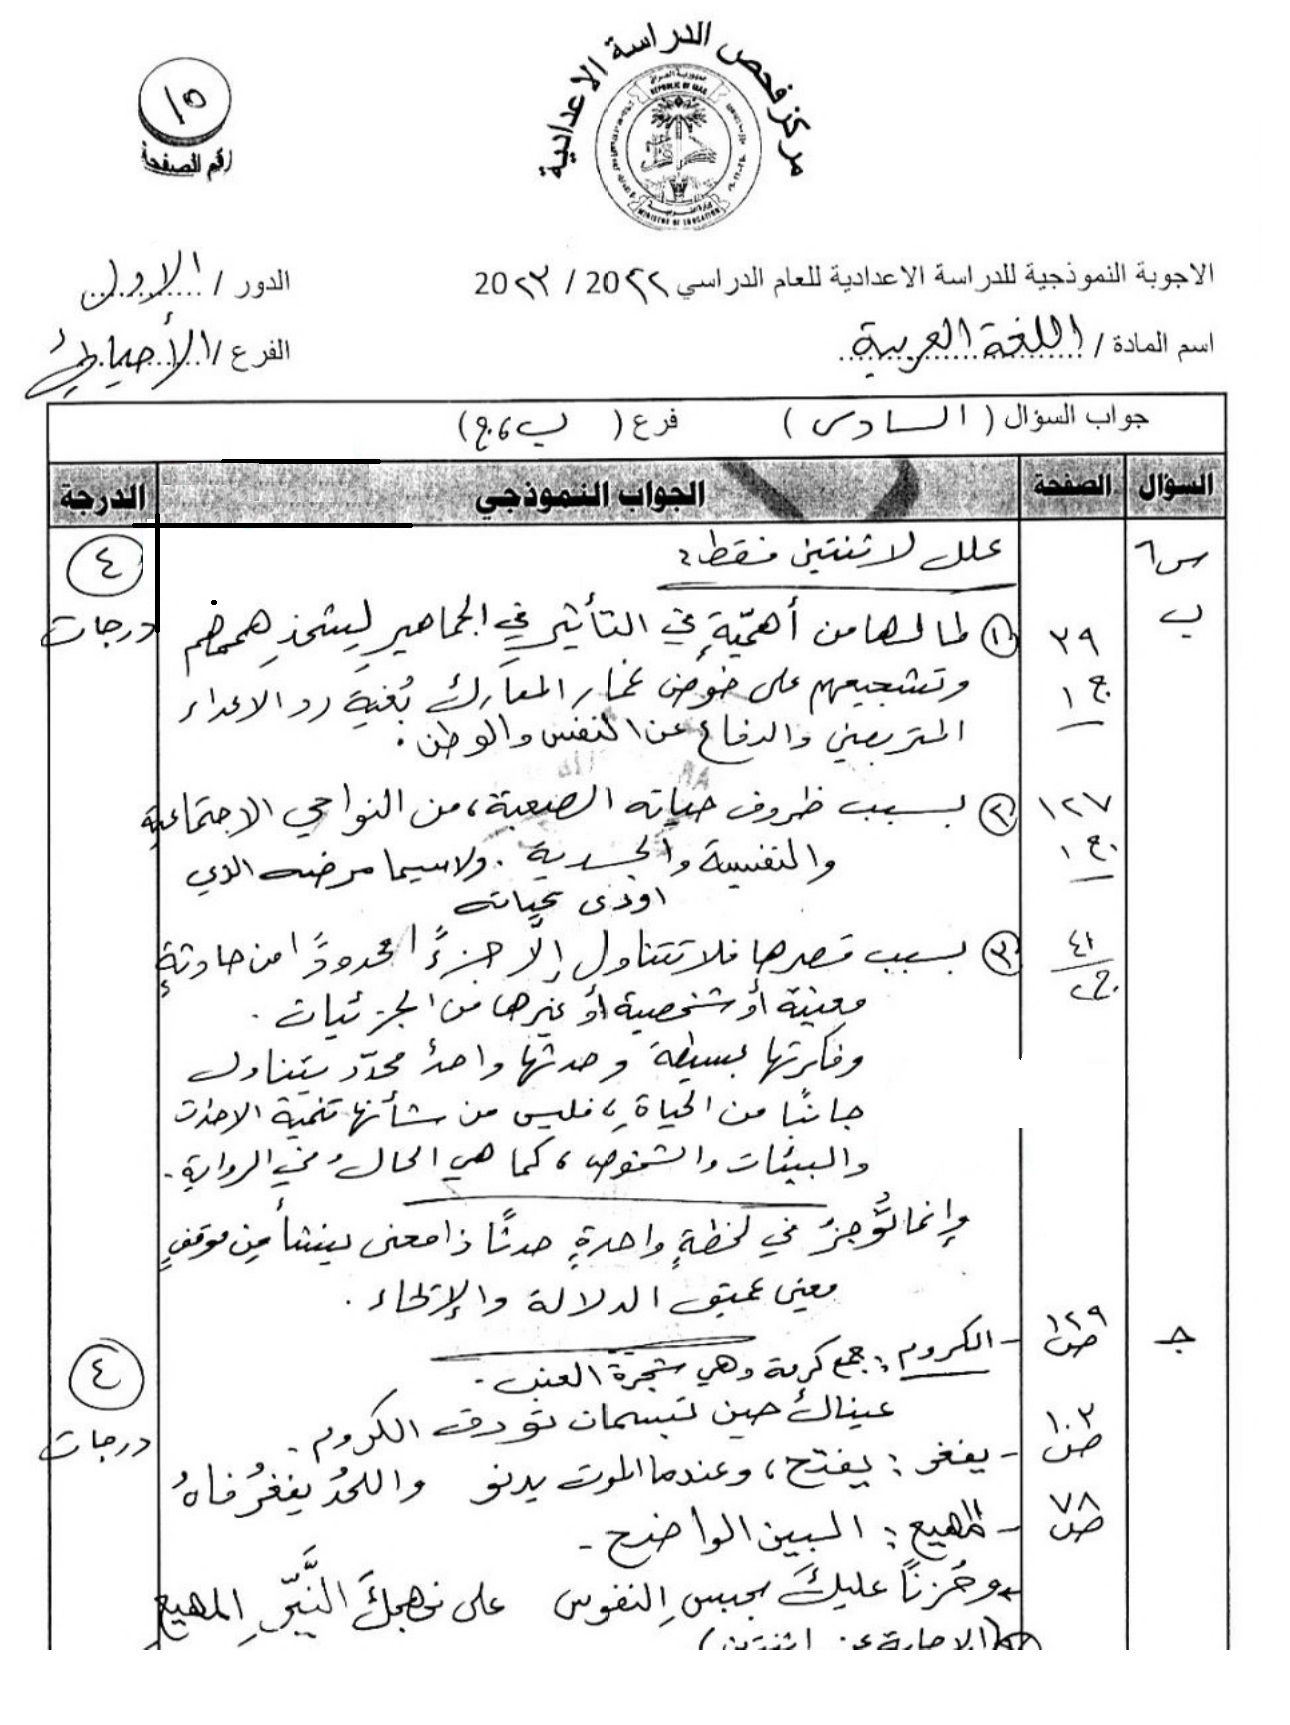 مركز فحص الدراسة الاعدادية
جمهورية العراق
REPUBLIC OF IRAQ
وزارة التربية
MINISTRY OF EDUCATION
١٥
رقم الصفحة
الاجوبة النموذجية للدراسة الاعدادية للعام الدراسي 20٢٢ / 20٢٣
الدور / الاول
اسم المادة / اللغة العربية
الفرع / الأحيائي
جواب السؤال ( السادس ) فرع ( ب ، ج )
السؤال الصفحة الجواب النموذجي الدرجة
س٦ علل لاثنتين فقط : ٤
ب ٢٩ ج١ ① لما لها من أهميّةٍ في التأثير في الجماهيرِ ليشحذِ هممهم درجات
وتشجيعهم على خوض غمار المعارك بُغية رد الاعداء
المتربصين والدفاع عن النفس والوطن .
١٢٧ ج١ ② بسبب ظروف حياته الصعبة ، من النواحي الاجتماعية
والنفسية والجسدية . ولاسيما مرضه الذي
اودى بحياته
٤١ ج٢ ③ بسبب قصرها فلا تتناول إلّا جزءً محدودًا من حادثةٍ
معينة أو شخصية أو غيرها من الجزئيات .
وفكرتها بسيطة وحدثها واحدٌ محدّد يتناول
جانبًا من الحياةِ ، فليس من شأنها تنمية الاحداث
والبيئات والشخوص ، كما هي الحالُ في الرواية .
وإنما تُوجزُ في لحظةٍ واحدةٍ حدثًا ذا معنى ينشأ من موقفٍ
معين عميق الدلالة والإيحاء .
جـ ص ١٢٩ - الكروم : جمع كرمة وهي شجرة العنب . ٤
عيناكِ حين تبسمان تورق الكروم . درجات
ص ١٠٣ - يفغر : يفتح ، وعندما الموت يدنو واللحدُ يفغرُ فاهُ
ص ٧٨ - المهيع : البين الواضح -
وحُزنًا عليكَ بحبسِ النفوس على نهجكَ النَّيِّرِ المهيعِ
(الاجابة عن اثنتين)